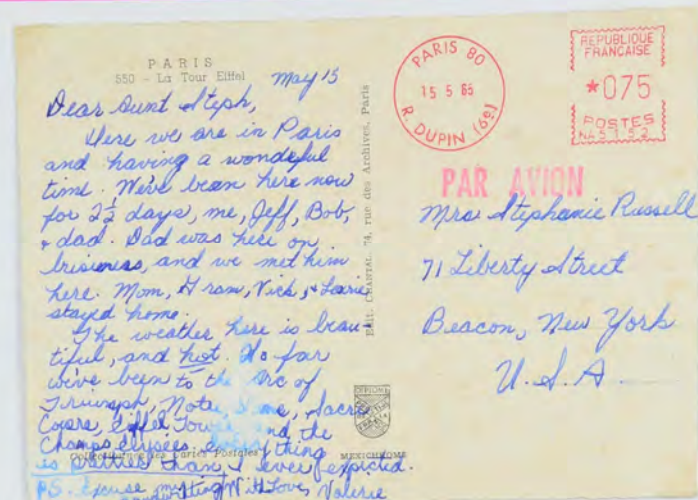 PARIS
550 - La Tour Eiffel
May 15
Dear Aunt Steph,
Here we are in Paris
and having a wonderful
time. We've been here now
for 2½ days, me, Jeff, Bob,
& dad. Dad was here on
business, and we met him
here. Mom, Gram, Vick, &
stayed home.
The weather here is beau-
tiful, and hot. So far
we've been to the Arc of
Triumph, Notre Dame, Sacre
Coeure, Eiffel Tower and the
Champs Elysees. everything
is prettier than I ever expected.
PS. Excuse my writing With Love, Valerie
Collectionnez les Cartes Postales
MEXICHROME
Edit. CHANTAL, 74, rue des Archives, Paris
PARIS 80
15 5 65
R. DUPIN (6e)
REPUBLIQUE
FRANCAISE
*075
POSTES
PAR AVION
Mrs Stephanie Russell
71 Liberty Street
Beacon, New York
U.S.A.